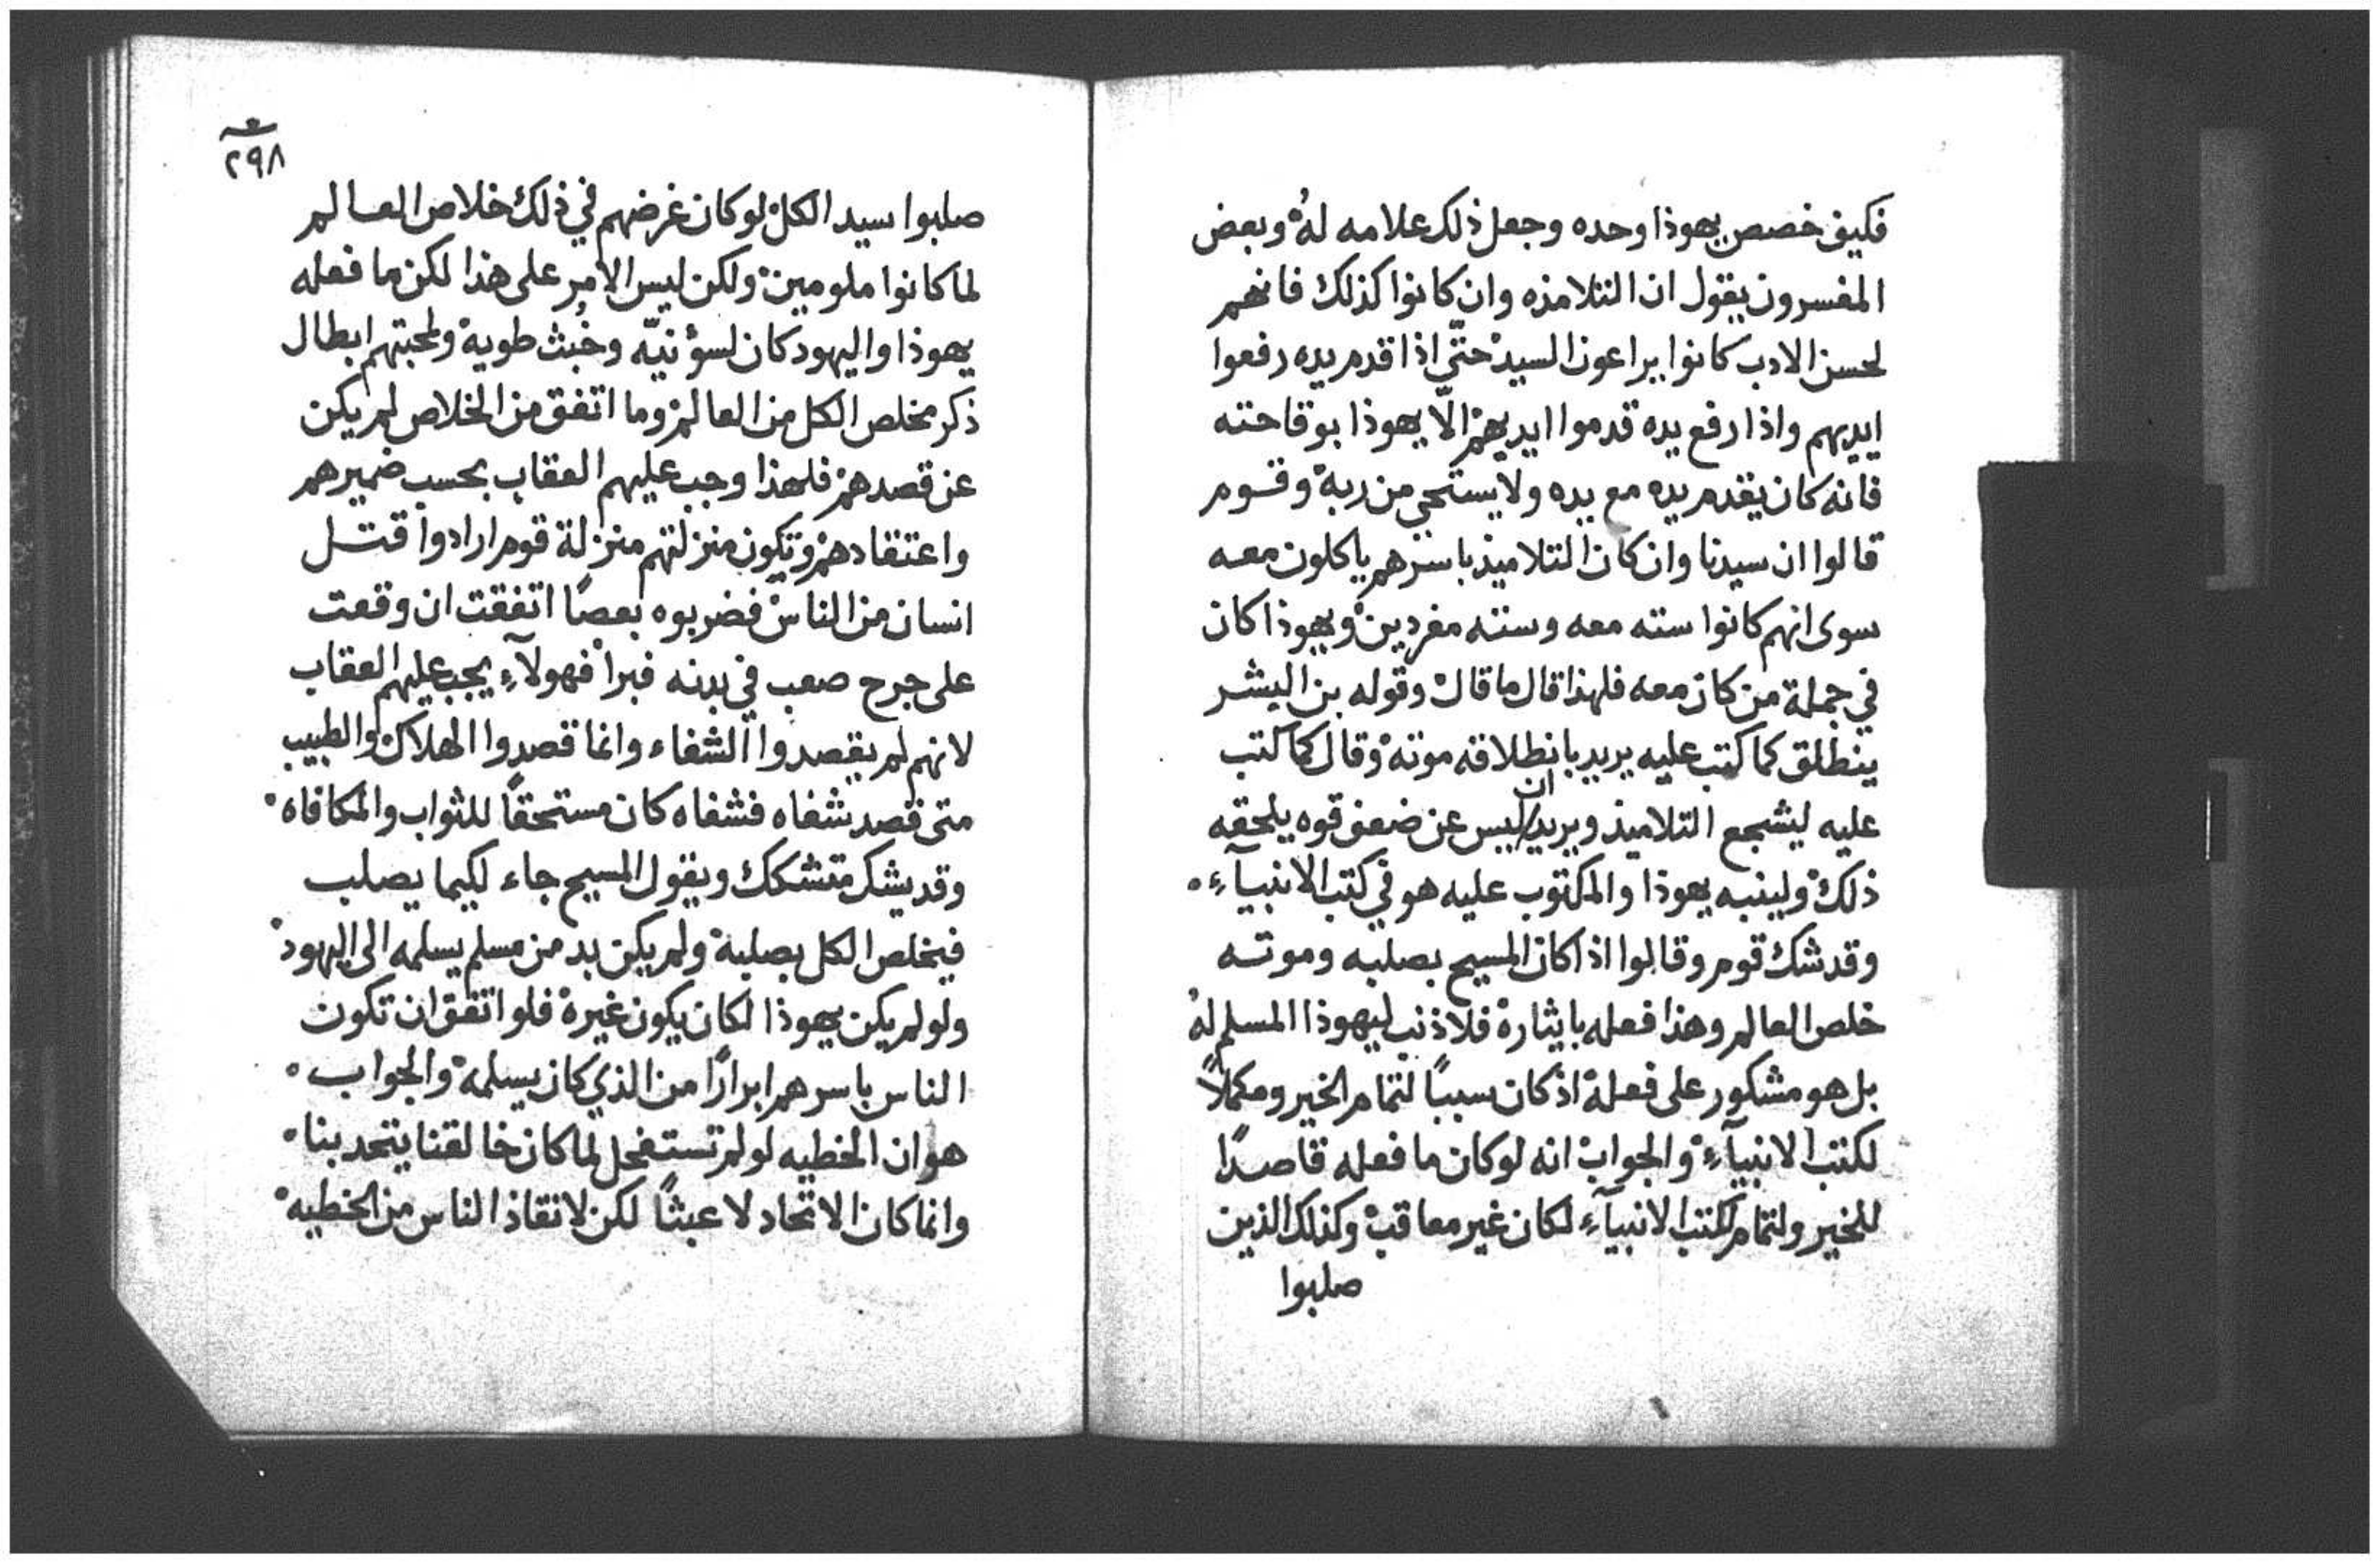 فكيف خصص يهوذا وحده وجعل ذلك علامه لهُ وبعض
المفسرون يقول ان التلامذه وان كانوا كذلك فانهم
لحسن الادب كانوا يراعون السيد حتّي اذا قدم يده رفعوا
ايديهم واذا رفع يده قدموا ايديهم الّا يهوذا بوقاحته
فانه كان يقدم يده مع يده ولا يستحي من ربه وقوم
قالوا ان سيدنا وان كان التلاميذ باسرهم ياكلون معه
سوى انهم كانوا سته معه وسته مفردين ويهوذا كان
في جملة من كان معه فلهذا قال ما قال وقوله بن البشر
ينطلق كما كتب عليه يريد بانطلاقه موته وقال كما كتب
عليه ليشجع التلاميذ ويريد ان ليس عن ضعف قوه يلحقه
ذلك ولينبه يهوذا والمكتوب عليه هو في كتب الانبيآءِ
وقد شك قوم وقالوا اذا كان المسيح بصلبه وموته
خلص العالم وهذا فعله بايثاره فلا ذنب ليهوذا المسلم لهُ
بل هو مشكور على فعله اذ كان سببًا لتمام الخير ومكملاً
لكتب الانبيآءِ والجواب انه لو كان ما فعله قاصدًا
للخير ولتمام كتب الانبيآءِ لكان غير معاقب وكذلك الذين
صلبوا
٢٩٨
صلبوا سيد الكل لو كان غرضهم في ذلك خلاص العالم
لما كانوا ملومين ولكن ليس الامر على هذا لكن ما فعله
يهوذا واليهود كان لسؤ نيّه وخُبث طويه ولمحبتهم ابطال
ذكر مخلص الكل من العالم وما اتفق من الخلاص لم يكن
عن قصدهم فلهذا وجب عليهم العقاب بحسب ضميرهم
واعتقادهم وتكون منزلتهم منزلة قوم ارادوا قتل
انسان من الناس فضربوه بعصًا اتفقت ان وقعت
على جرح صعب في بدنه فبرا فهولآءِ يجب عليهم العقاب
لانهم لم يقصدوا الشفاء وانما قصدوا الهلاك والطبيب
متى قصد شفاه فشفاه كان مستحقاً للثواب والمكافاه
وقد يشك متشكك ويقول المسيح جاء لكيما يصلب
فيخلص الكل بصلبه ولم يكن بد من مسلم يسلمه الى اليهود
ولو لم يكن يهوذا لكان يكون غيره فلو اتفق ان تكون
الناس باسرهم ابرارًا من الذي كان يسلمه والجواب
هو ان الخطيه لو لم تستفحل لما كان خالقنا يتحد بنا
وانما كان الاتحاد لا عبثًا لكن لانقاذ الناس من الخطيه